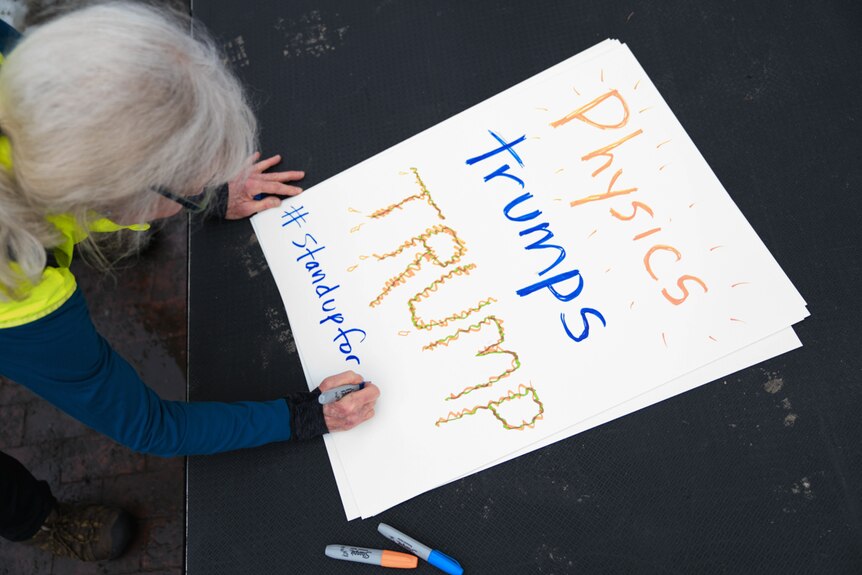 Physics
trumps
TRUMP
#Standupfor
Sharpie